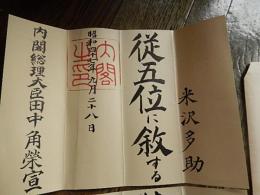 米沢多助
従五位に敘する
内閣之印
昭和四十七年九月二十八日
内閣総理大臣田中角榮宣